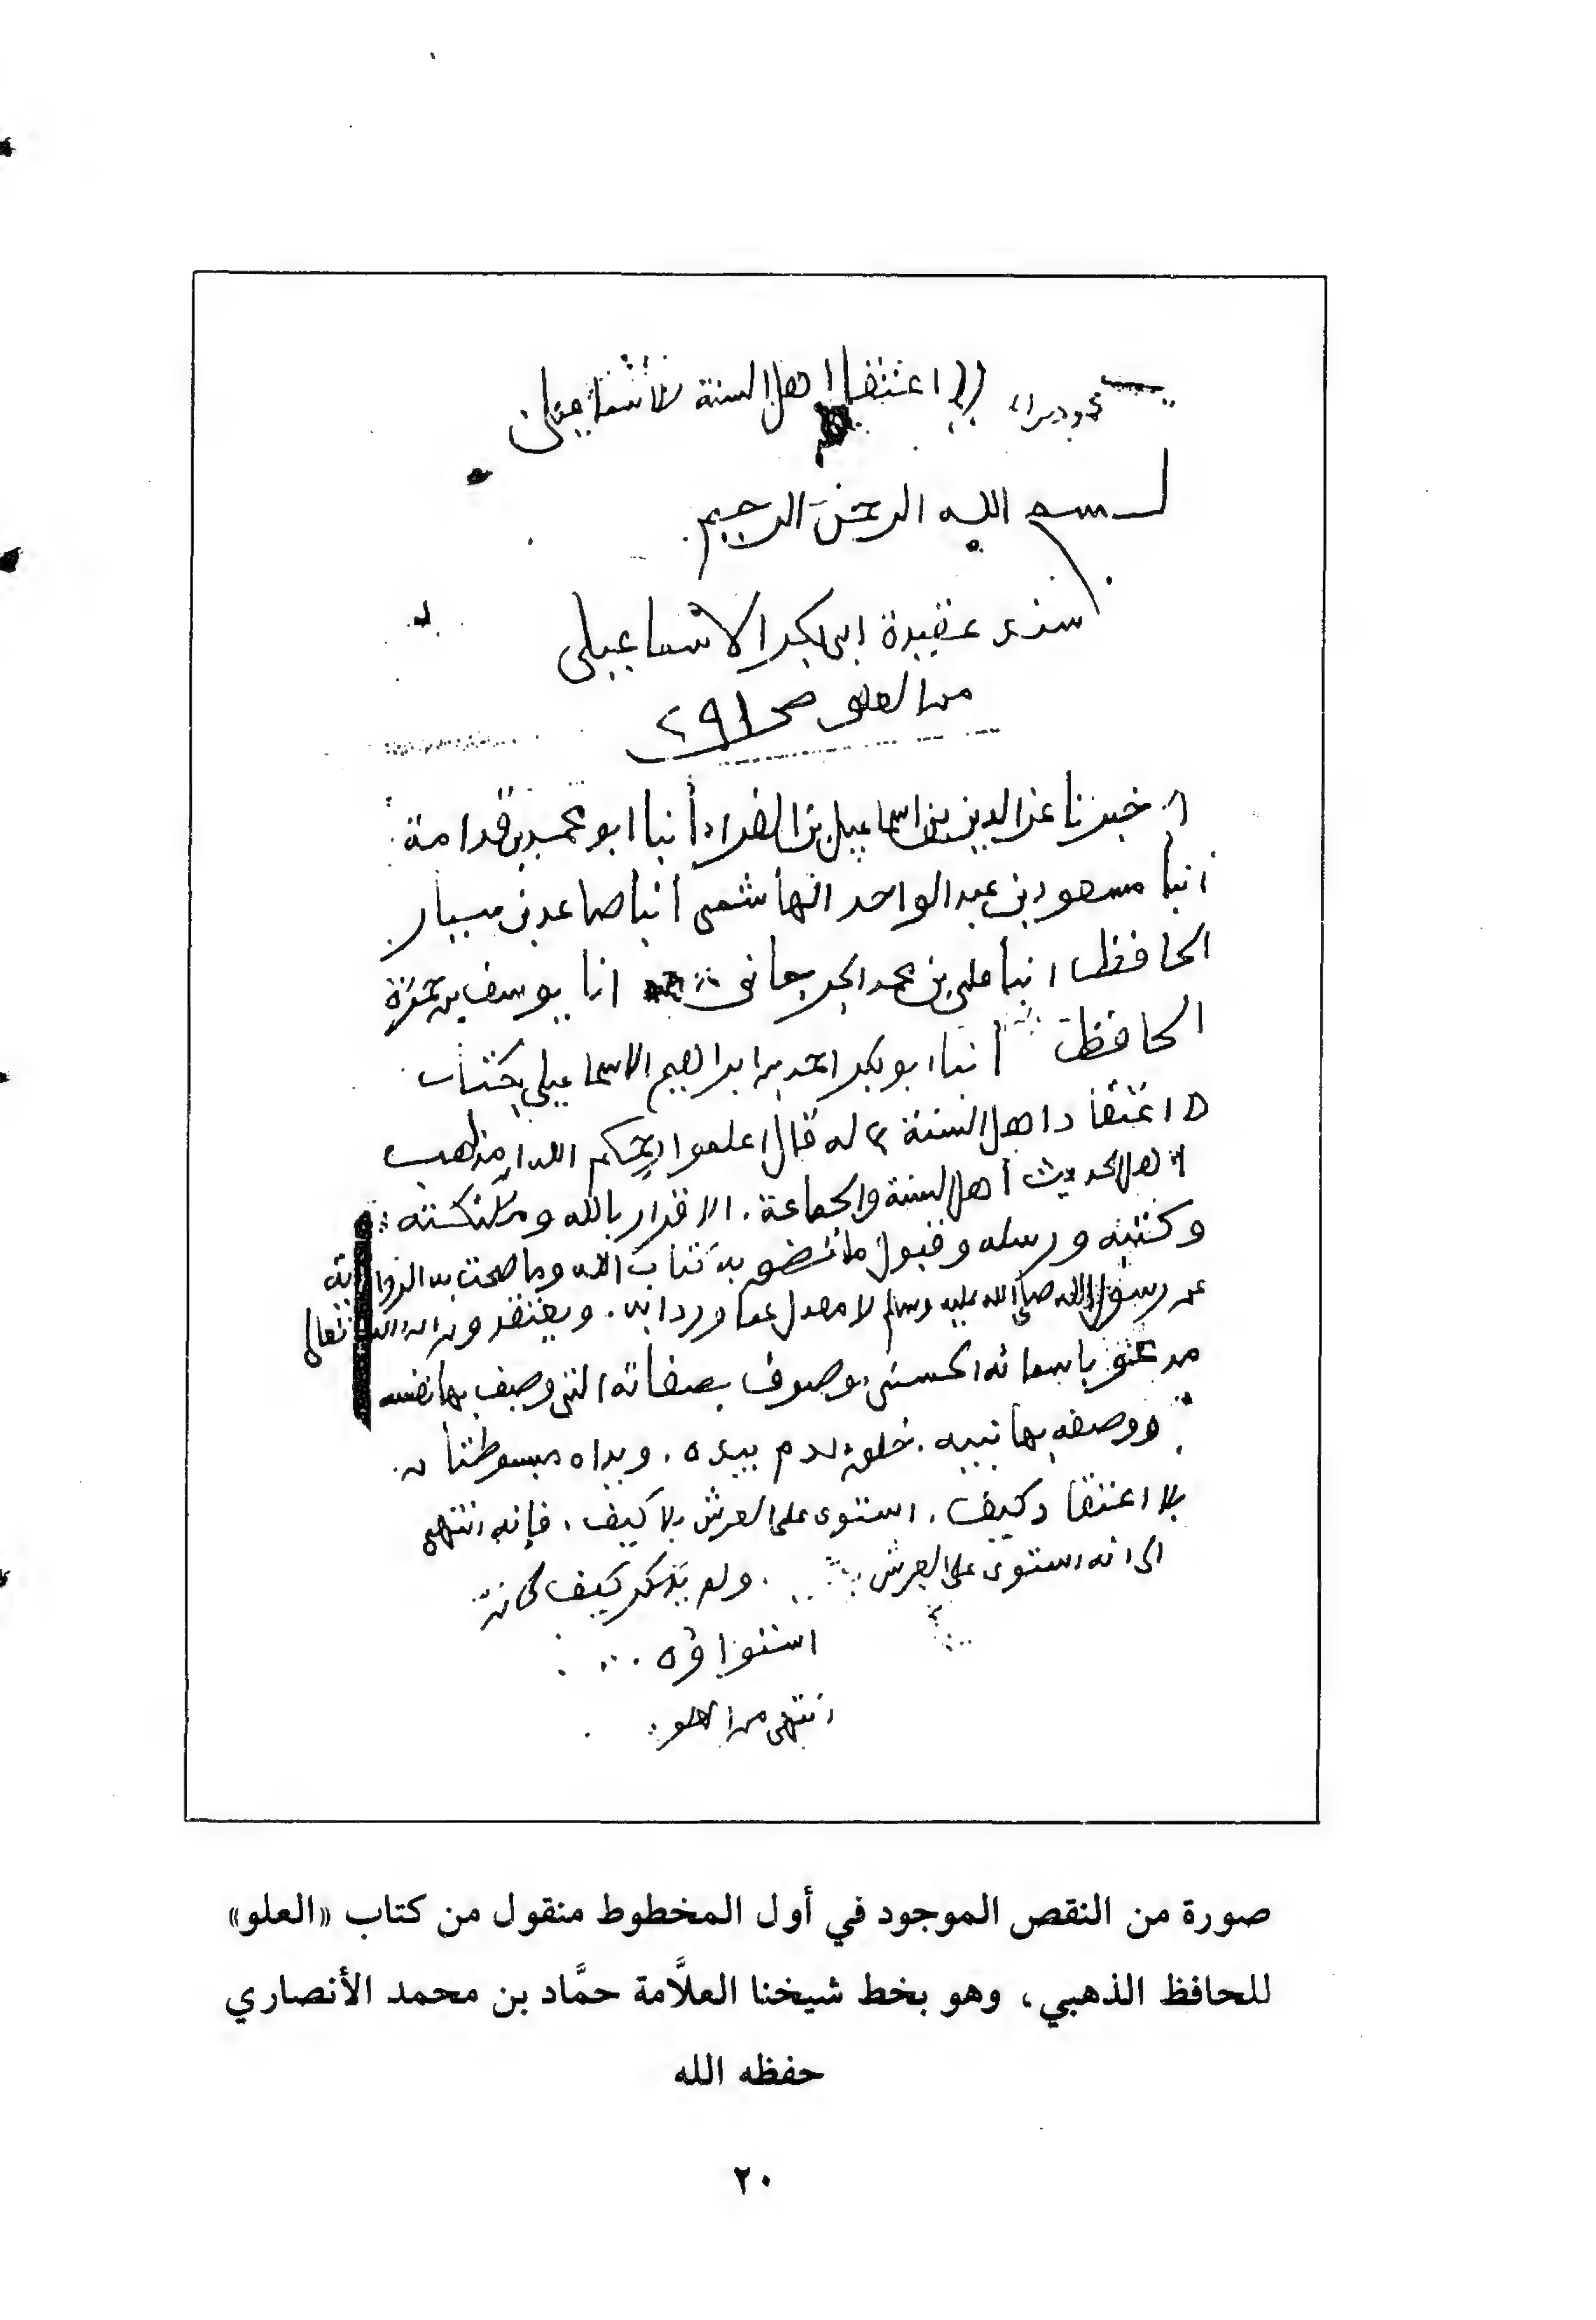 اعتقا اهل السنة للاسماعيلى
بسم الله الرحمن الرحيم
سند عقيدة ابى بكر الاسماعيلى
من العلو ص ٢٩١
اخبرنا عز الدين بن اسماعيل بن الفراء أنبا ابو محمد بن قدامة
انبا مسعود بن عبد الواحد الهاشمى انبا صاعد بن سيار
الحافظ انبا على بن محمد الجرجانى انا يوسف بن حمزة
الحافظ انبا ابو بكر احمد بن ابراهيم الاسماعيلى بكتاب
اعتقاد اهل السنة له قال اعلموا رحمكم الله ان مذهب
اهل الحديث أهل السنة والجماعة . الاقرار بالله وملئكته
وكتبه ورسله وقبول ما نطق به كتاب الله وما صحت به الرواية
عن رسول الله صلى الله عليه وسلم لا معدل عما ورد ابه . ويعتقدون ان الله تعالى
مدعو باسمائه الحسنى موصوف بصفاته التى وصف بها نفسه
ووصفه بها نبيه . خلق ادم بيده . ويداه مبسوطتان
بلا اعتقاد كيف . استوى على العرش بلا كيف . فإنه انتهى
الى انه استوى على العرش . ولم يذكر كيف كان
استواؤه ...
انتهى من العلو
صورة من النقص الموجود في أول المخطوط منقول من كتاب «العلو»
للحافظ الذهبي، وهو بخط شيخنا العلاَّمة حمَّاد بن محمد الأنصاري
حفظه الله
٢٠